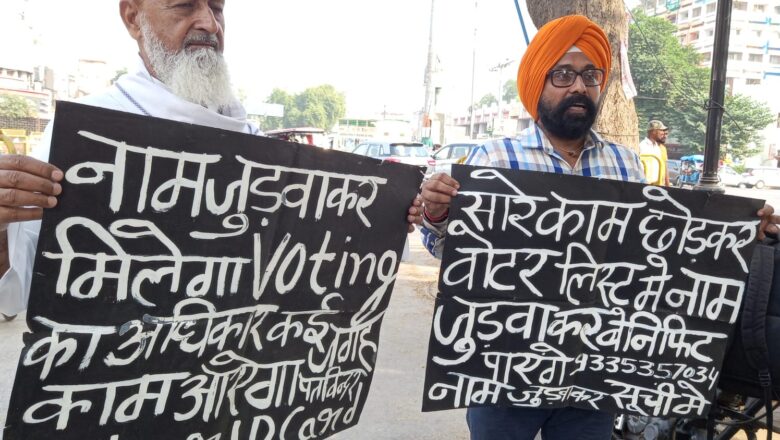 नाम जुड़वाकर
मिलेगा Voting
का अधिकार कई जगह
काम आऐगा
ID Card
सारे काम छोड़कर
वोटर लिस्ट मे नाम
जुड़वाकर वेनिफिट
पायेगे 9335357034
नाम जुड़वाकर सूची मे